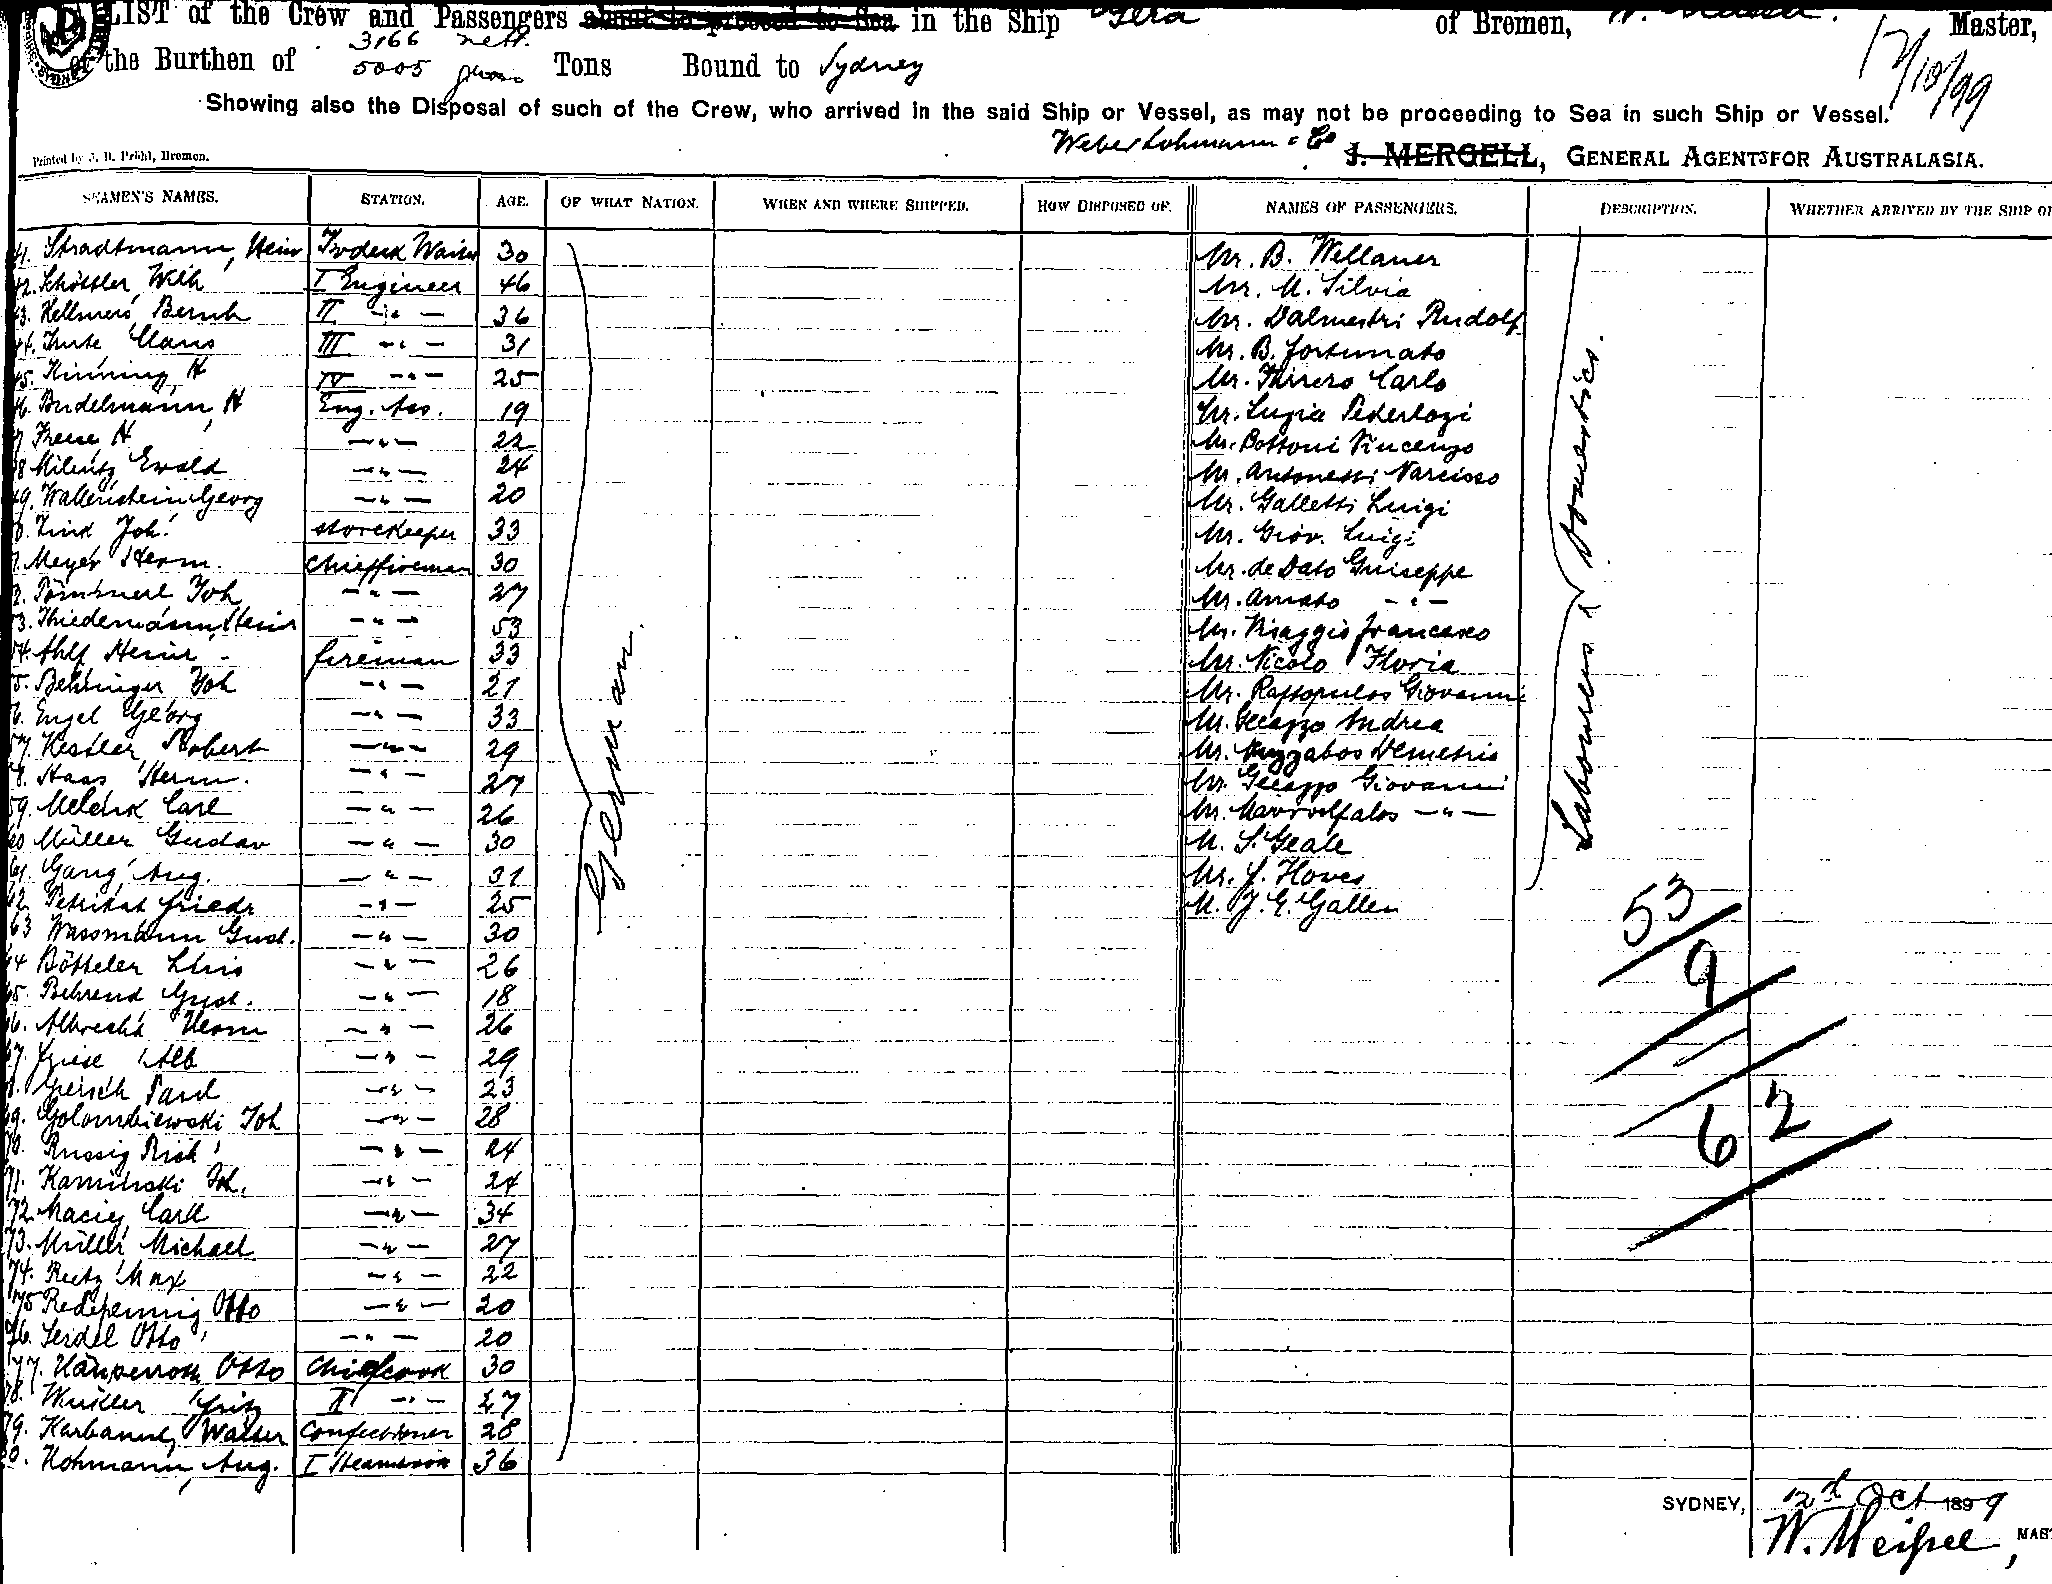 LIST of the Crew and Passengers about to proceed to Sea in the Ship Gera of Bremen, W. Master,
of the Burthen of 3166 nett. 5005 gross Tons Bound to Sydney
12/10/99
Showing also the Disposal of such of the Crew, who arrived in the said Ship or Vessel, as may not be proceeding to Sea in such Ship or Vessel.
Weber Lohmann & Co J. MERGELL, GENERAL AGENTS FOR AUSTRALASIA.
Printed by J. D. Pröhl, Bremen.
SEAMEN'S NAMES. STATION. AGE. OF WHAT NATION. WHEN AND WHERE SHIPPED. HOW DISPOSED OF. NAMES OF PASSENGERS. DESCRIPTION. WHETHER ARRIVED BY THE SHIP O
41. Stradtmann, Heinr 30 Mr. B. Wellauer
42. Schöttler, Wilh I Engineer 46 Mr. M. Silvia
43. Hellmers, Bernh II -"- 36 Mr. Dalmestri Rudolf
44. Claus III -"- 31 Mr. B. Fortunato
45. Hinning, H IV -"- 25 Mr. Carlo
46. Budelmann, H Eng. Ass. 19 Mr. Luzia
47. Frese H -"- 22 Mr. Bottoni Vincenzo
48 Milentz Ewald -"- 24 Mr. Antonetti Narcisso
49. Wallenstein Georg -"- 20 Mr. Galletti Luigi
50. Zink Joh. storekeeper 33 Mr. Giov. Luigi
51. Meyer Herm. Chieffireman 30 Mr. de Dato Guiseppe
52. Joh -"- 27 Mr. Amato -"-
53. Thiedemann, Heinr -"- 53 Mr. Biaggio Francesco
54. Ahlf Heinr fireman 33 Mr. Nicolo Floria
55. Behringer Joh -"- 21 Mr. Giovanni
56. Engel Georg -"- 33 Mr. Andrea
57. Kestler Robert -"- 29 Mr. Demetrio
58. Haas Herm. -"- 27 Mr. Giovanni
59. Melenk Carl -"- 26 Mr. -"-
60 Müller Gustav -"- 30 M. S. Geale
61. Gang Aug. -"- 31 Mr. Hoves
62. Petrikat Friedr -"- 25 M. J. E. Gallen
63 Wassmann Gust. -"- 30
64 Bötteler Chris -"- 26
65. Behrend Gust. -"- 18
66. Albrecht Herm -"- 26
67. Giese Alb -"- 29
68. Giersch Paul -"- 23
69. Golombiewski Joh -"- 28
70. Russig Rich -"- 24
71. Kaminski Joh. -"- 24
72. Maciey Carl -"- 34
73. Müller Michael -"- 27
74. Reetz Max -"- 22
75 Redepennig Otto -"- 20
76. Seidel Otto -"- 20
77. Otto Chiefcook 30
78. Fritz II -"- 27
79. Walter Confectioner 28
80. Hohmann, Aug. I Steamcook 36
German.
Labourers & Domestics.
53
9
62
SYDNEY, 12th Oct 1899
W. Meissel, MAST